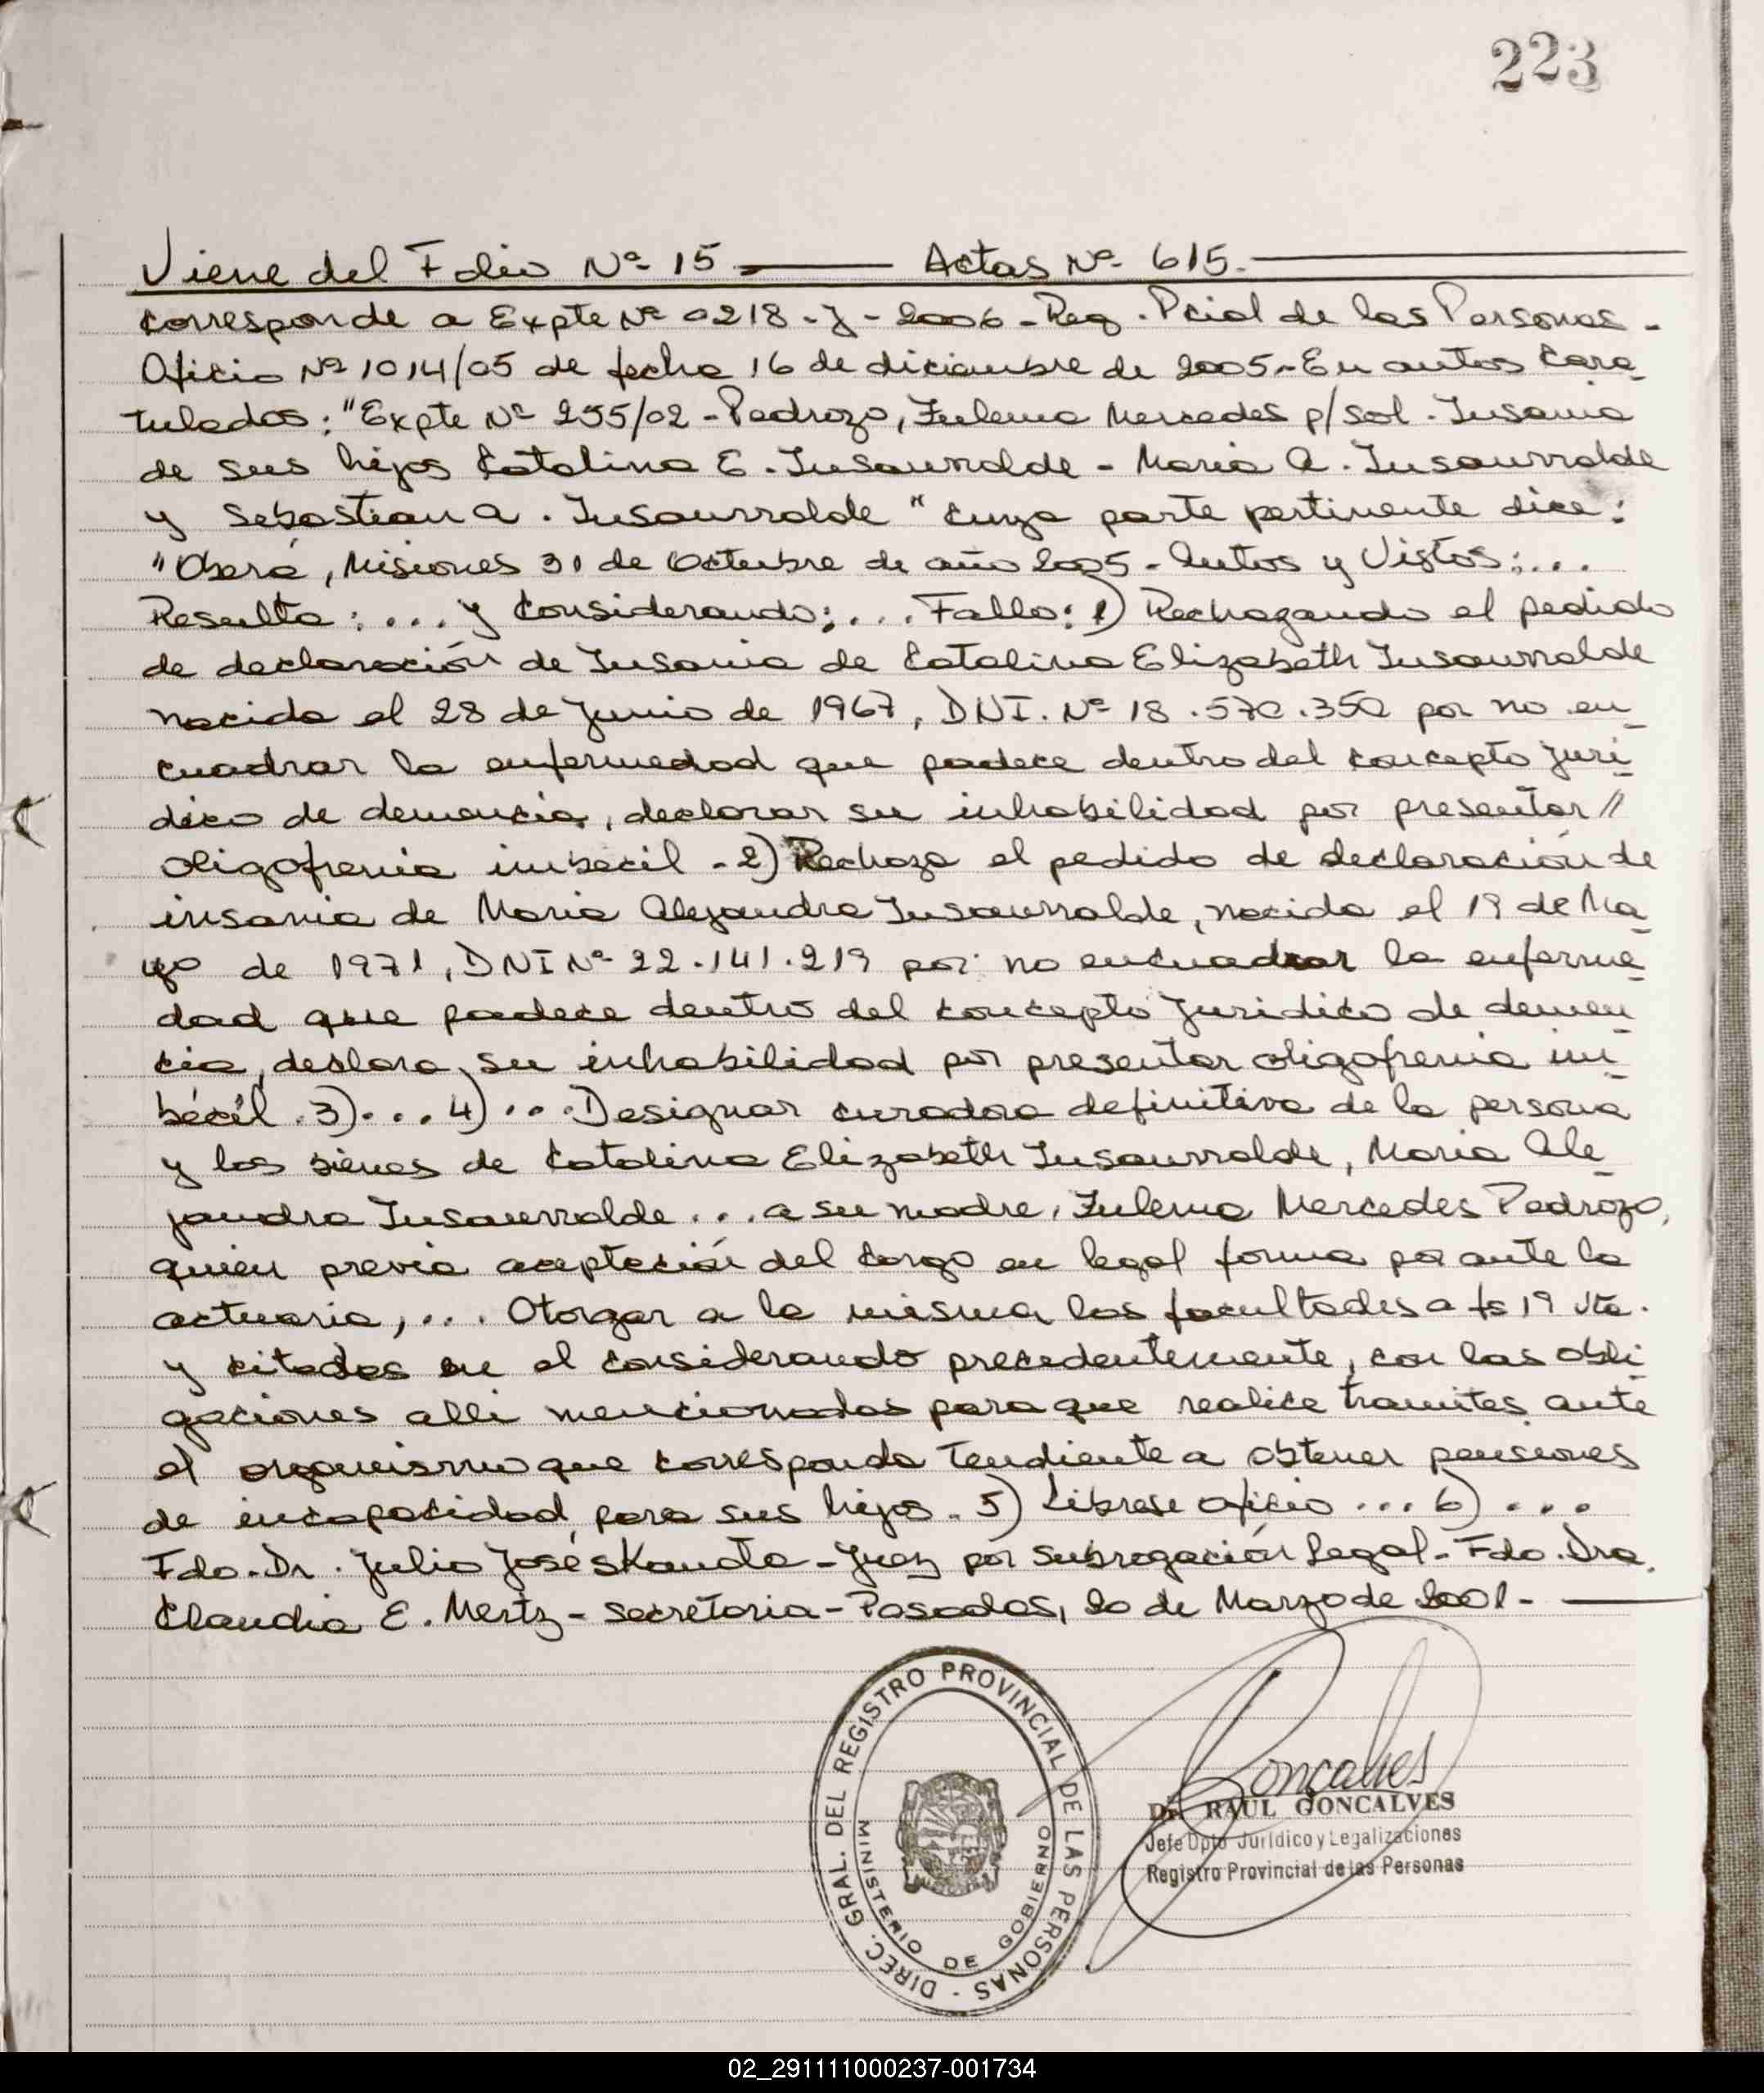 223
Viene del Folio Nº 15 — Actas Nº 615.
Corresponde a Expte Nº 0218-J-2006-Reg. Pcial de las Personas-
Oficio Nº 1014/05 de fecha 16 de diciembre de 2005.-En autos cara-
tulados: "Expte Nº 255/02-Pedrozo, Zulema Mercedes p/sol. Insania
de sus hijos Catalina E. Insaurralde - Maria A. Insaurralde
y Sebastian A. Insaurralde" cuya parte pertinente dice:
"Oberá, Misiones 31 de Octubre de año 2005- Autos y Vistos:...
Resulta: ... y Considerando:... Fallo: 1) Rechazando el pedido
de declaración de Insania de Catalina Elizabeth Insaurralde
nacida el 28 de Junio de 1967, DNI. Nº 18.570.350 por no en-
cuadrar la enfermedad que padece dentro del concepto juri-
dico de demencia, declarar su inhabilidad por presentar //
oligofrenia imbecil - 2) Rechaza el pedido de declaración de
insania de Maria Alejandra Insaurralde, nacida el 19 de Ma-
yo de 1971, DNI Nº 22.141.219 por no encuadrar la enferme-
dad que padece dentro del concepto juridico de demen-
cia, declara su inhabilidad por presentar oligofrenia im-
bécil. 3)... 4)... Designar curadora definitiva de la persona
y los bienes de Catalina Elizabeth Insaurralde, Maria Ale-
jandra Insaurralde... a su madre, Zulema Mercedes Pedrozo,
quien previa aceptación del cargo en legal forma por ante la
actuaria, ... Otorgar a la misma las facultades a fs 19 vta.
y citados en el considerando precedentemente, con las obli-
gaciones alli mencionadas para que realice tramites ante
el organismo que corresponda tendiente a obtener pensiones
de incapacidad para sus hijos. 5) Librese oficio ... 6) ...
Fdo. Dr. Julio José Skanata - Juez por Subrogación Legal- Fdo. Dra.
Claudia E. Mertz - secretaria - Posadas, 20 de Marzo de 2001.-
DIREC. GRAL. DEL REGISTRO PROVINCIAL DE LAS PERSONAS -
MINISTERIO DE GOBIERNO
Goncalves
Dr. RAUL GONCALVES
Jefe Dpto Jurídico y Legalizaciones
Registro Provincial de las Personas
02_291111000237-001734